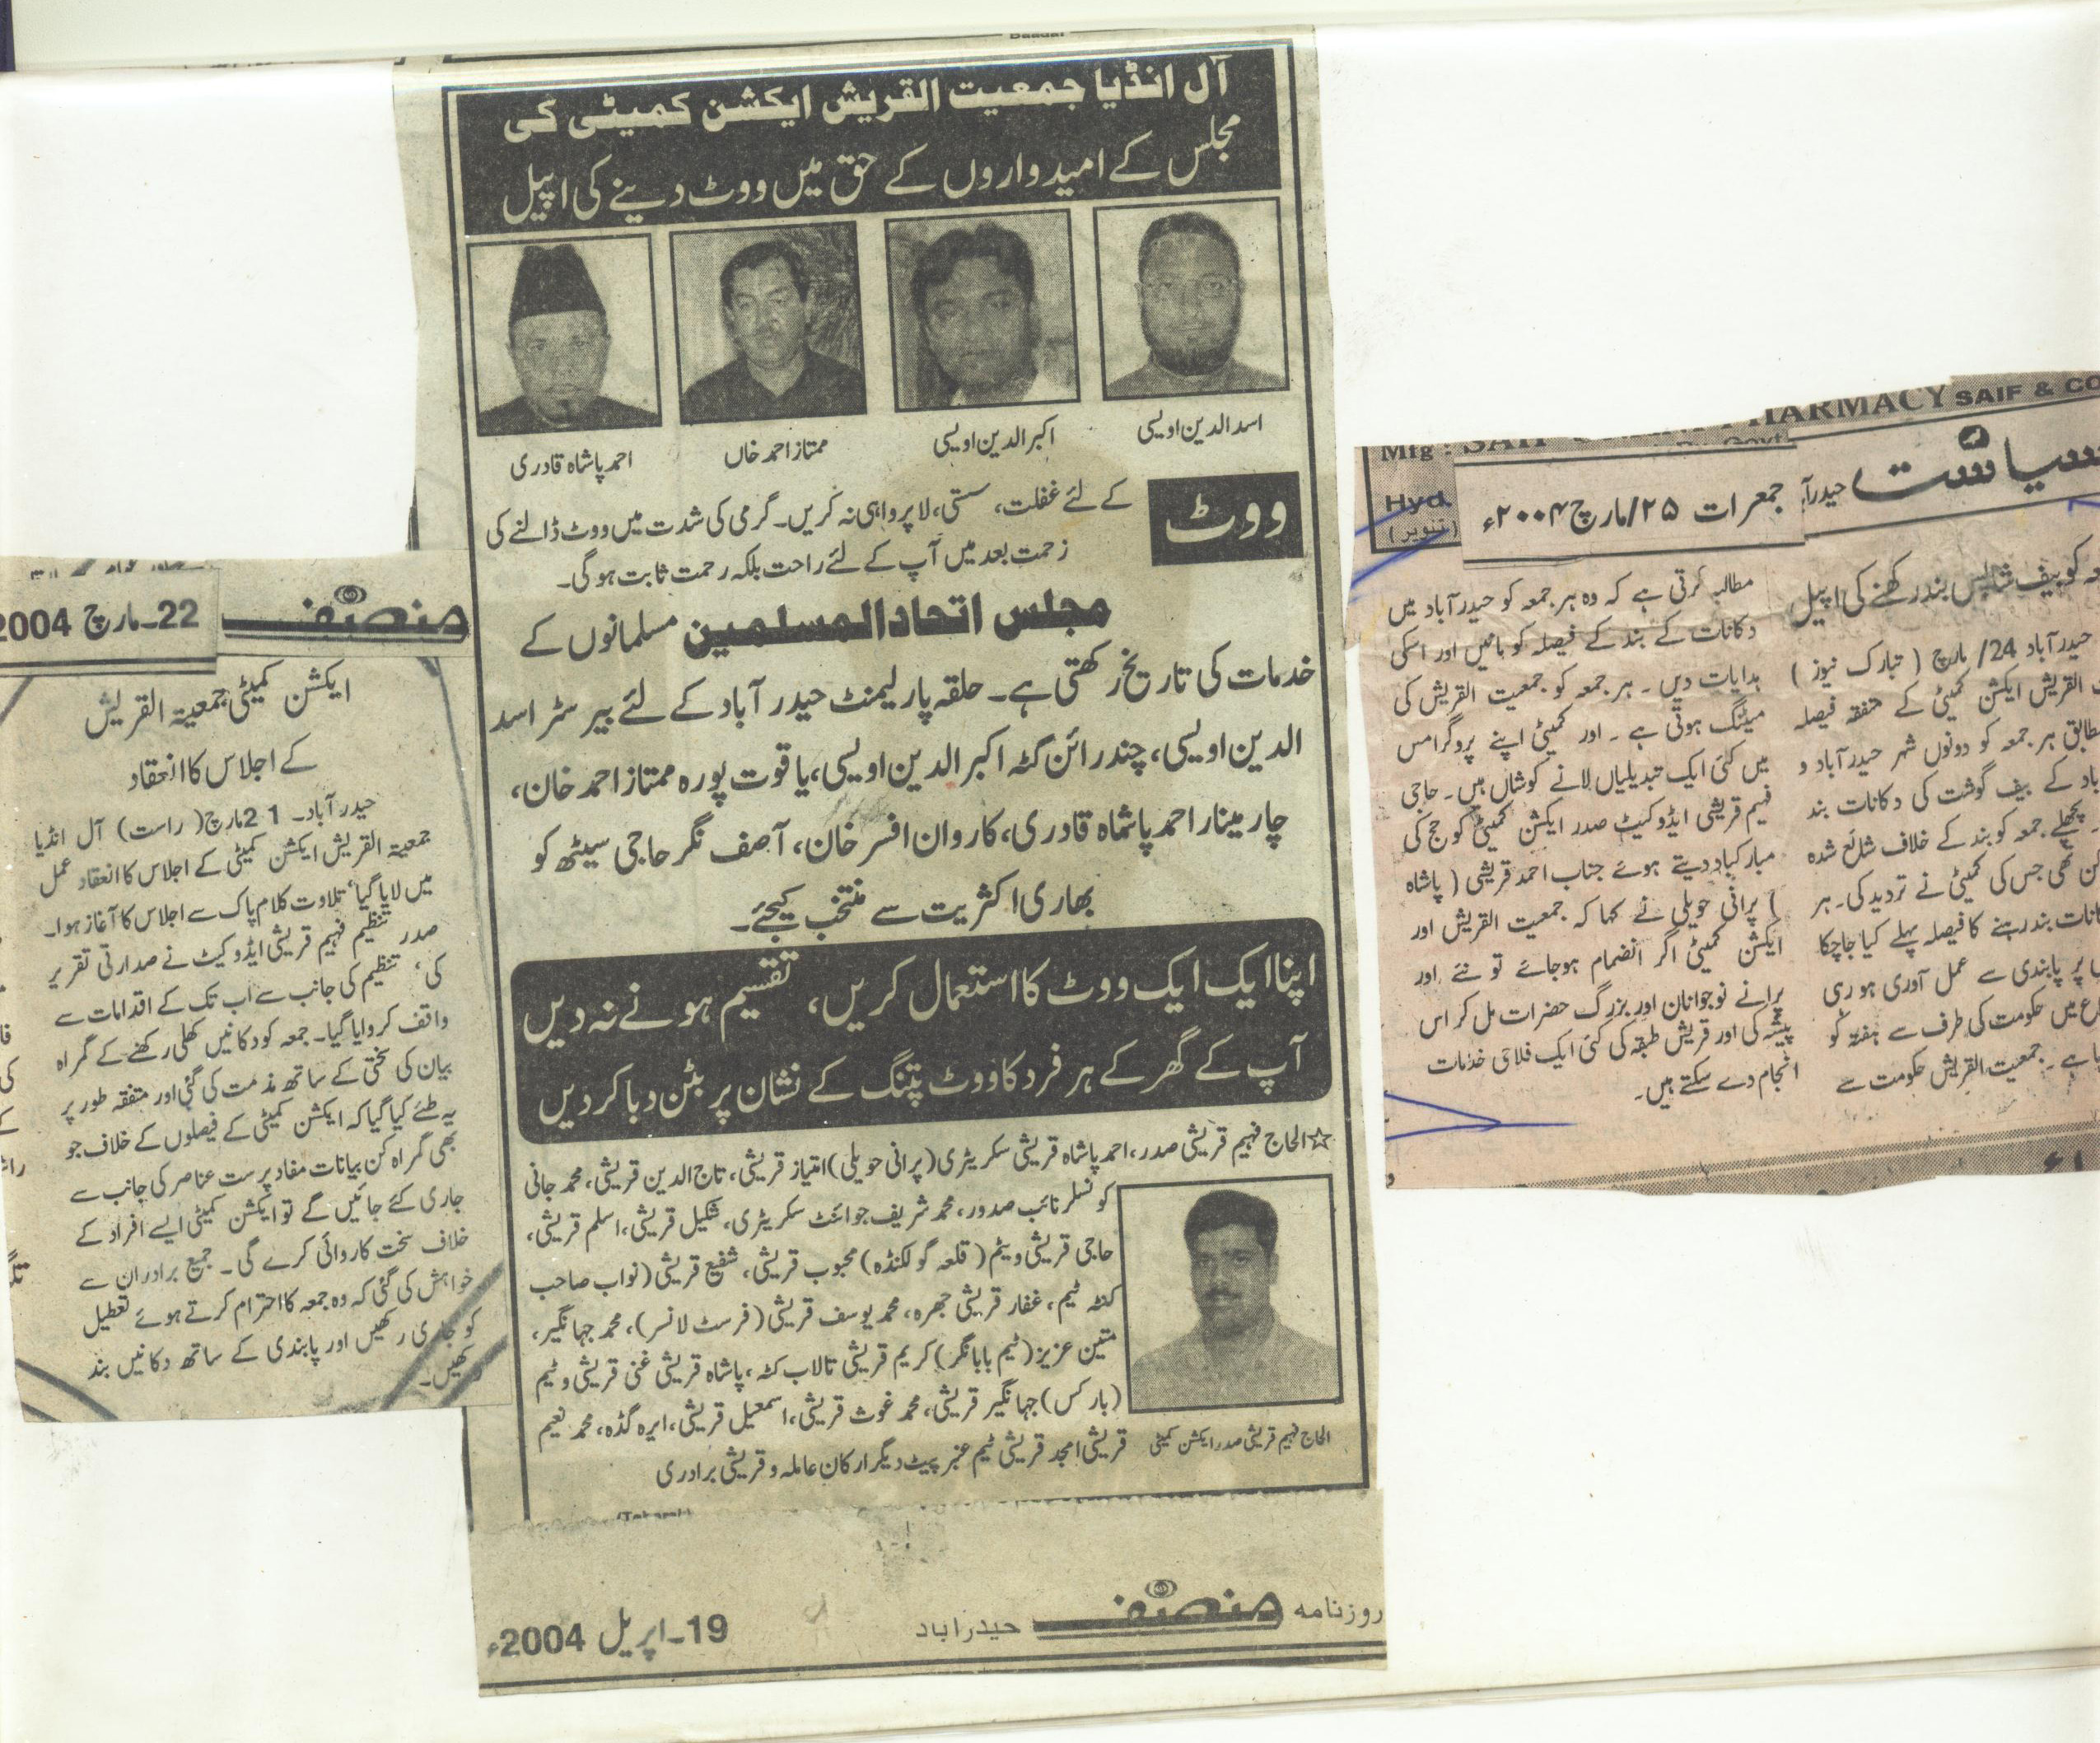 آل انڈیا جمعیت القریش ایکشن کمیٹی کی
مجلس کے امیدواروں کے حق میں ووٹ دینے کی اپیل
اسد الدین اویسی
اکبر الدین اویسی
ممتاز احمد خاں
احمد پاشاہ قادری
ووٹ
کے لئے غفلت، سستی، لاپرواہی نہ کریں۔ گرمی کی شدت میں ووٹ ڈالنے کی
زحمت بعد میں آپ کے لئے راحت بلکہ رحمت ثابت ہوگی۔
مجلس اتحادالمسلمین مسلمانوں کے
خدمات کی تاریخ رکھتی ہے۔ حلقہ پارلیمنٹ حیدرآباد کے لئے بیرسٹر اسد
الدین اویسی، چندرائن گٹہ اکبر الدین اویسی، یاقوت پورہ ممتاز احمد خان،
چارمینار احمد پاشاہ قادری، کاروان افسر خان، آصف نگر حاجی سیٹھ کو
بھاری اکثریت سے منتخب کیجئے۔
اپنا ایک ایک ووٹ کا استعمال کریں، تقسیم ہونے نہ دیں
آپ کے گھر کے ہر فرد کا ووٹ پتنگ کے نشان پر بٹن دبا کر دیں
☆الحاج فہیم قریشی صدر، احمد پاشاہ قریشی سکریٹری (پرانی حویلی) امتیاز قریشی، تاج الدین قریشی، محمد جانی
کونسلر نائب صدور، محمد شریف جوائنٹ سکریٹری، شکیل قریشی، اسلم قریشی،
حاجی قریشی وٹیم (قلعہ گولکنڈہ) محبوب قریشی، شفیع قریشی (نواب صاحب
کنٹہ ٹیم، غفار قریشی جھرہ، محمد یوسف قریشی (فرسٹ لانسر)، محمد جہانگیر،
متین عزیز (ٹیم بابانگر) کریم قریشی تالاب کٹہ، پاشاہ قریشی غنی قریشی وٹیم
(بارکس) جہانگیر قریشی، محمد غوث قریشی، اسمعیل قریشی، ایرہ گڈہ، محمد نعیم
قریشی امجد قریشی ٹیم عنبرپیٹ دیگر ارکان عاملہ و قریشی برادری
الحاج فہیم قریشی صدر ایکشن کمیٹی
روزنامہ منصف حیدرآباد
19۔اپریل 2004ء
منصف
22۔مارچ 2004
ایکشن کمیٹی جمعیۃ القریش
کے اجلاس کا انعقاد
حیدرآباد۔ 21مارچ (راست) آل انڈیا
جمعیۃ القریش ایکشن کمیٹی کے اجلاس کا انعقاد عمل
میں لایا گیا، تلاوت کلام پاک سے اجلاس کا آغاز ہوا۔
صدر تنظیم فہیم قریشی ایڈوکیٹ نے صدارتی تقریر
کی، تنظیم کی جانب سے اب تک کے اقدامات سے
واقف کروایا گیا۔ جمعہ کو دکانیں کھلی رکھنے کے گمراہ
بیان کی سختی کے ساتھ مذمت کی گئی اور متفقہ طور پر
یہ طئے کیا گیا کہ ایکشن کمیٹی کے فیصلوں کے خلاف جو
بھی گمراہ کن بیانات مفاد پرست عناصر کی جانب سے
جاری کئے جائیں گے تو ایکشن کمیٹی ایسے افراد کے
خلاف سخت کاروائی کرے گی۔ جمیع برادران سے
خواہش کی گئی کہ وہ جمعہ کا احترام کرتے ہوئے تعطیل
کو جاری رکھیں اور پابندی کے ساتھ دکانیں بند
رکھیں۔
PHARMACY SAIF & CO
Mfg :
Hyd.
(تنویر)
سیاست حیدرآ
جمعرات ۲۵/مارچ ۲۰۰۴ء
کو بیف شاپس بند رکھنے کی اپیل
حیدرآباد 24/ مارچ (تبارک نیوز)
القریش ایکشن کمیٹی کے متفقہ فیصلہ
مطابق ہر جمعہ کو دونوں شہر حیدرآباد و
باد کے بیف گوشت کی دکانات بند
پچھلے جمعہ کو بند کے خلاف شائع شدہ
کن تھی جس کی کمیٹی نے تردید کی۔ ہر
کانات بند رہنے کا فیصلہ پہلے کیا جاچکا
پر پابندی سے عمل آوری ہو رہی
میں حکومت کی طرف سے ہفتہ کو
ہے۔ جمعیت القریش حکومت سے
مطالبہ کرتی ہے کہ وہ ہر جمعہ کو حیدرآباد میں
دکانات کے بند کے فیصلہ کو مانیں اور اسکی
ہدایات دیں۔ ہر جمعہ کو جمعیت القریش کی
میٹنگ ہوتی ہے۔ اور کمیٹی اپنے پروگرامس
میں کئی ایک تبدیلیاں لانے کوشاں ہیں۔ حاجی
فہیم قریشی ایڈوکیٹ صدر ایکشن کمیٹی کو حج کی
مبارکباد دیتے ہوئے جناب احمد قریشی (پاشاہ
) پرانی حویلی نے کہا کہ جمعیت القریش اور
ایکشن کمیٹی اگر انضمام ہوجائے تو نئے اور
پرانے نوجوانان اور بزرگ حضرات مل کر اس
پیشہ کی اور قریش طبقہ کی کئی ایک فلاحی خدمات
انجام دے سکتے ہیں۔